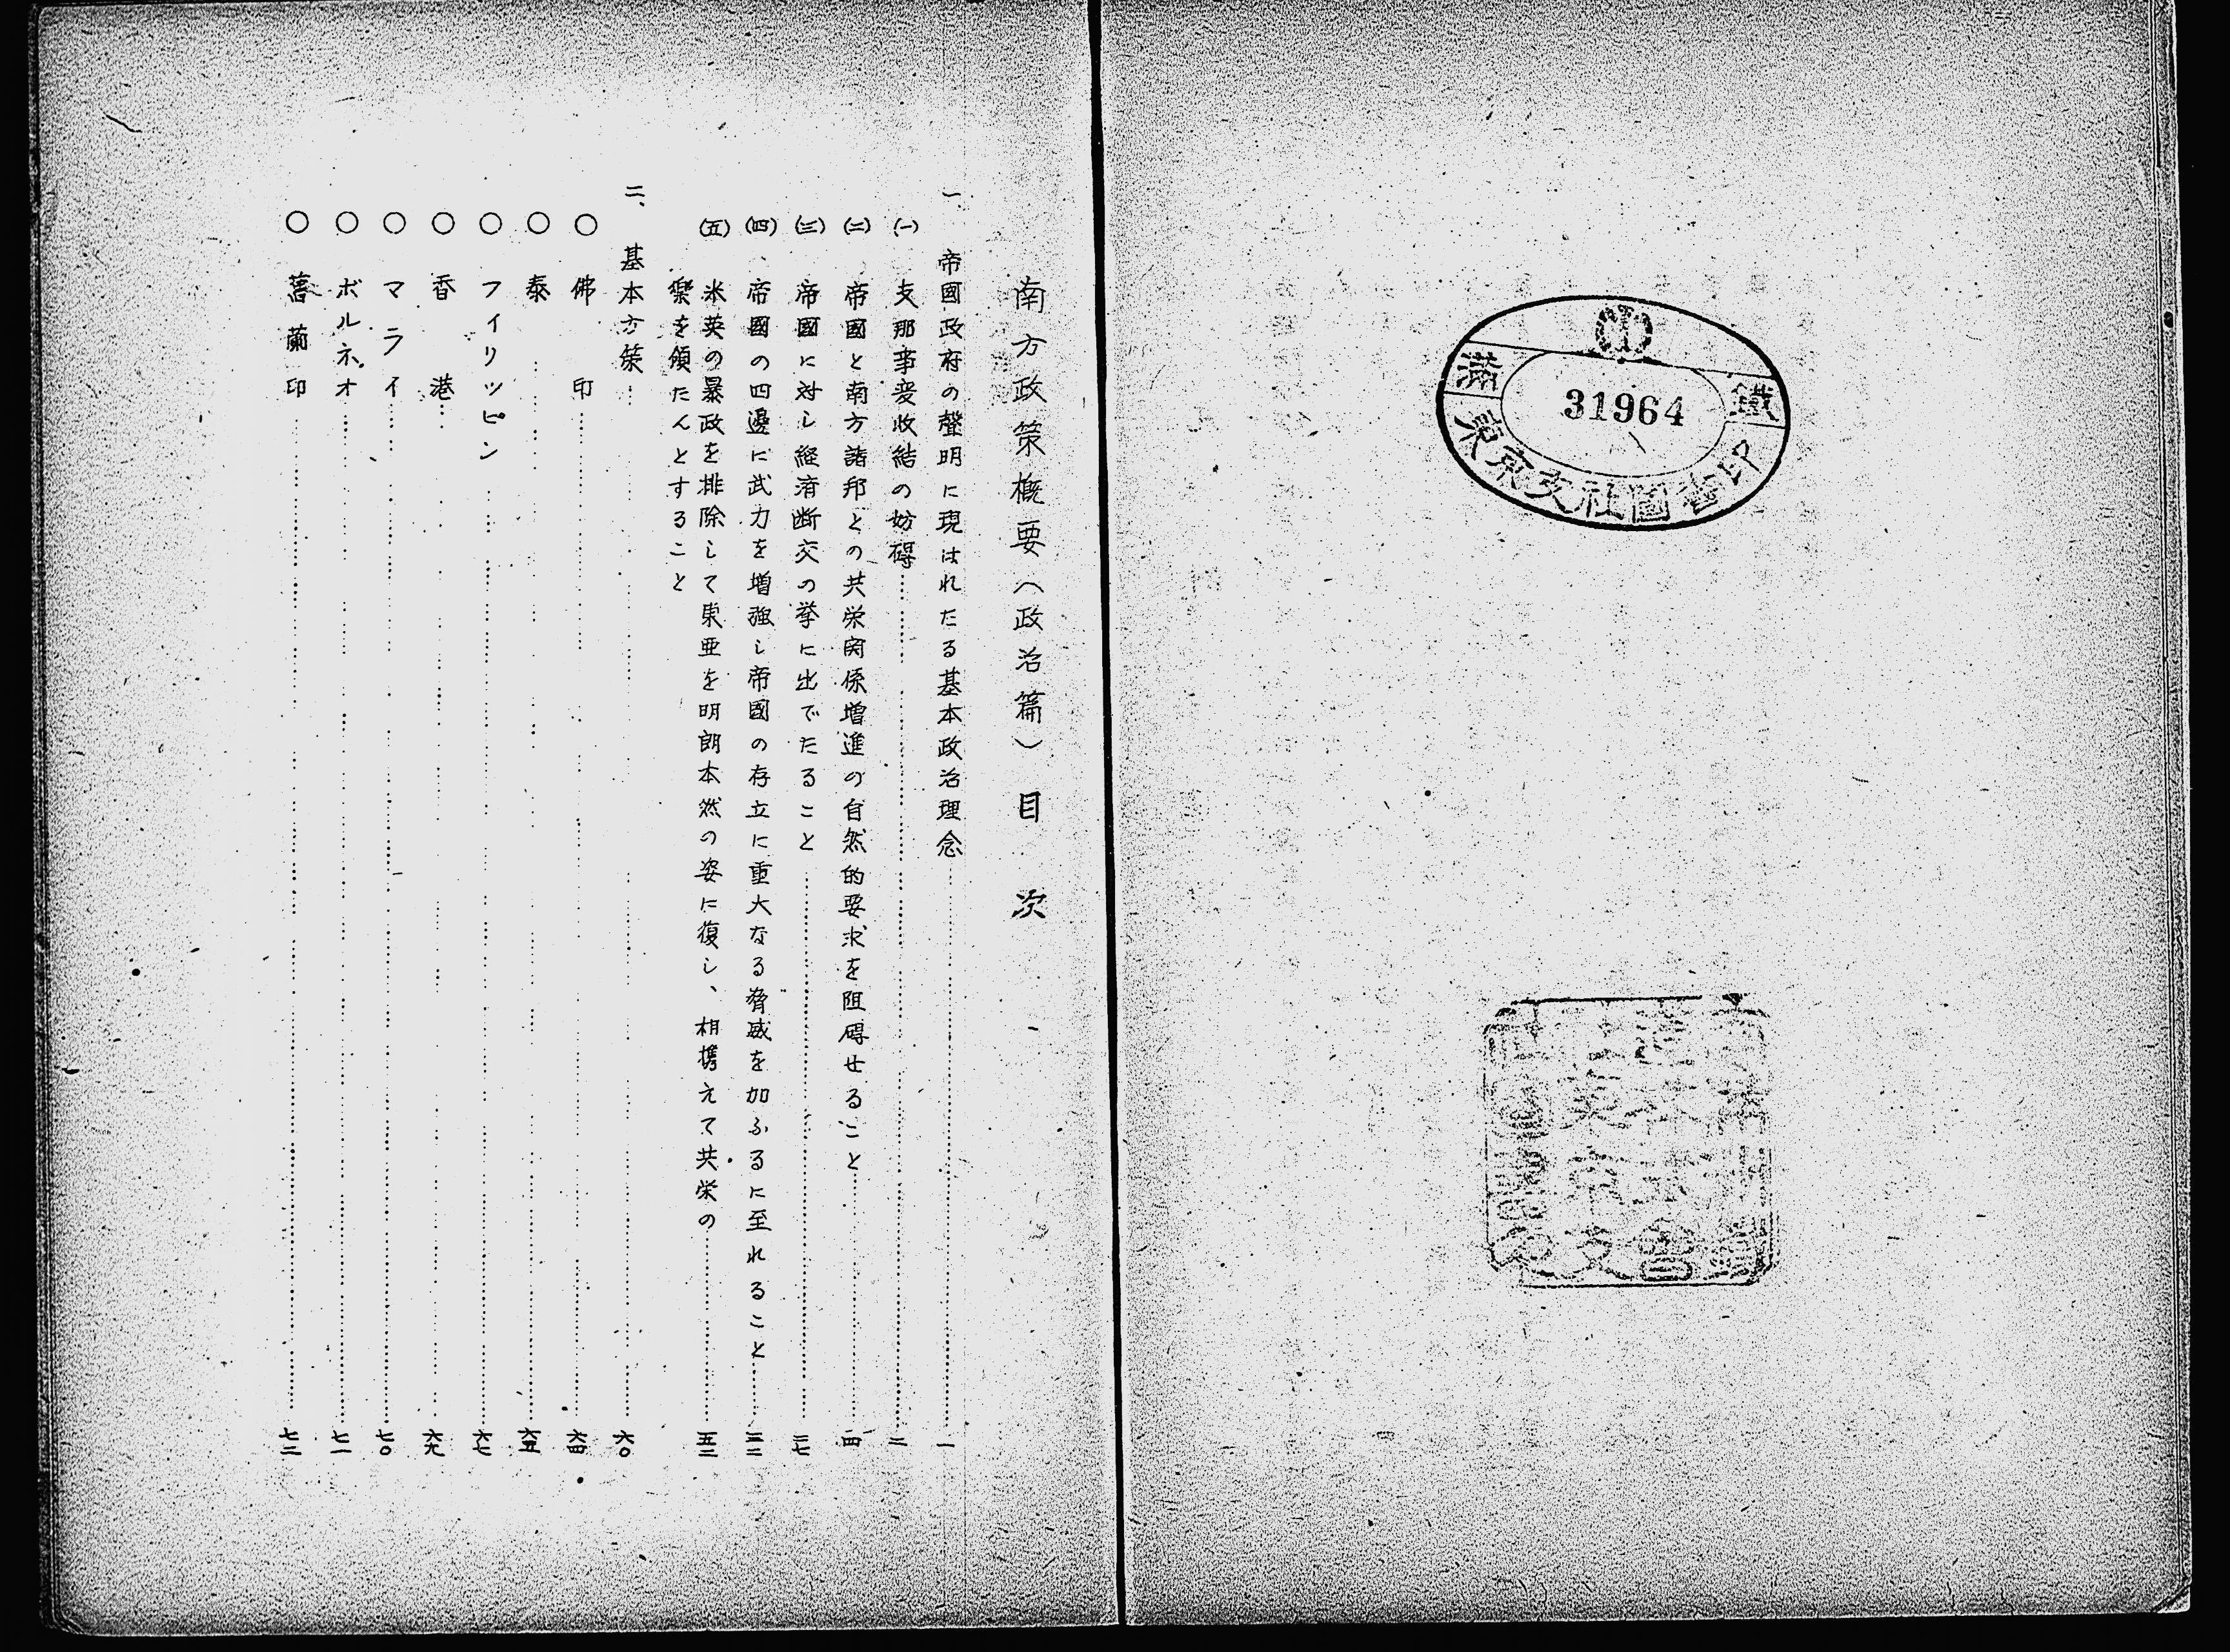 満鐵
31964
東京支社圖書印
南方政策概要（政治篇）目次
一、帝國政府の聲明に現はれたる基本政治理念……一
(一) 支那事変收結の妨碍……二
(二) 帝國と南方諸邦との共栄関係増進の自然的要求を阻碍せること……四
(三) 帝國に対し経済断交の挙に出でたること……二七
(四) 帝國の四邊に武力を増強し帝國の存立に重大なる脅威を加ふるに至れること……三二
(五) 米英の暴政を排除して東亜を明朗本然の姿に復し、相携えて共栄の……五三
樂を頒たんとすること
二、基本方策……六〇
○ 佛印……六四
○ 泰……六五
○ フィリッピン……六七
○ 香港……六九
○ マライ……七〇
○ ボルネオ……七一
○ 舊蘭印……七二